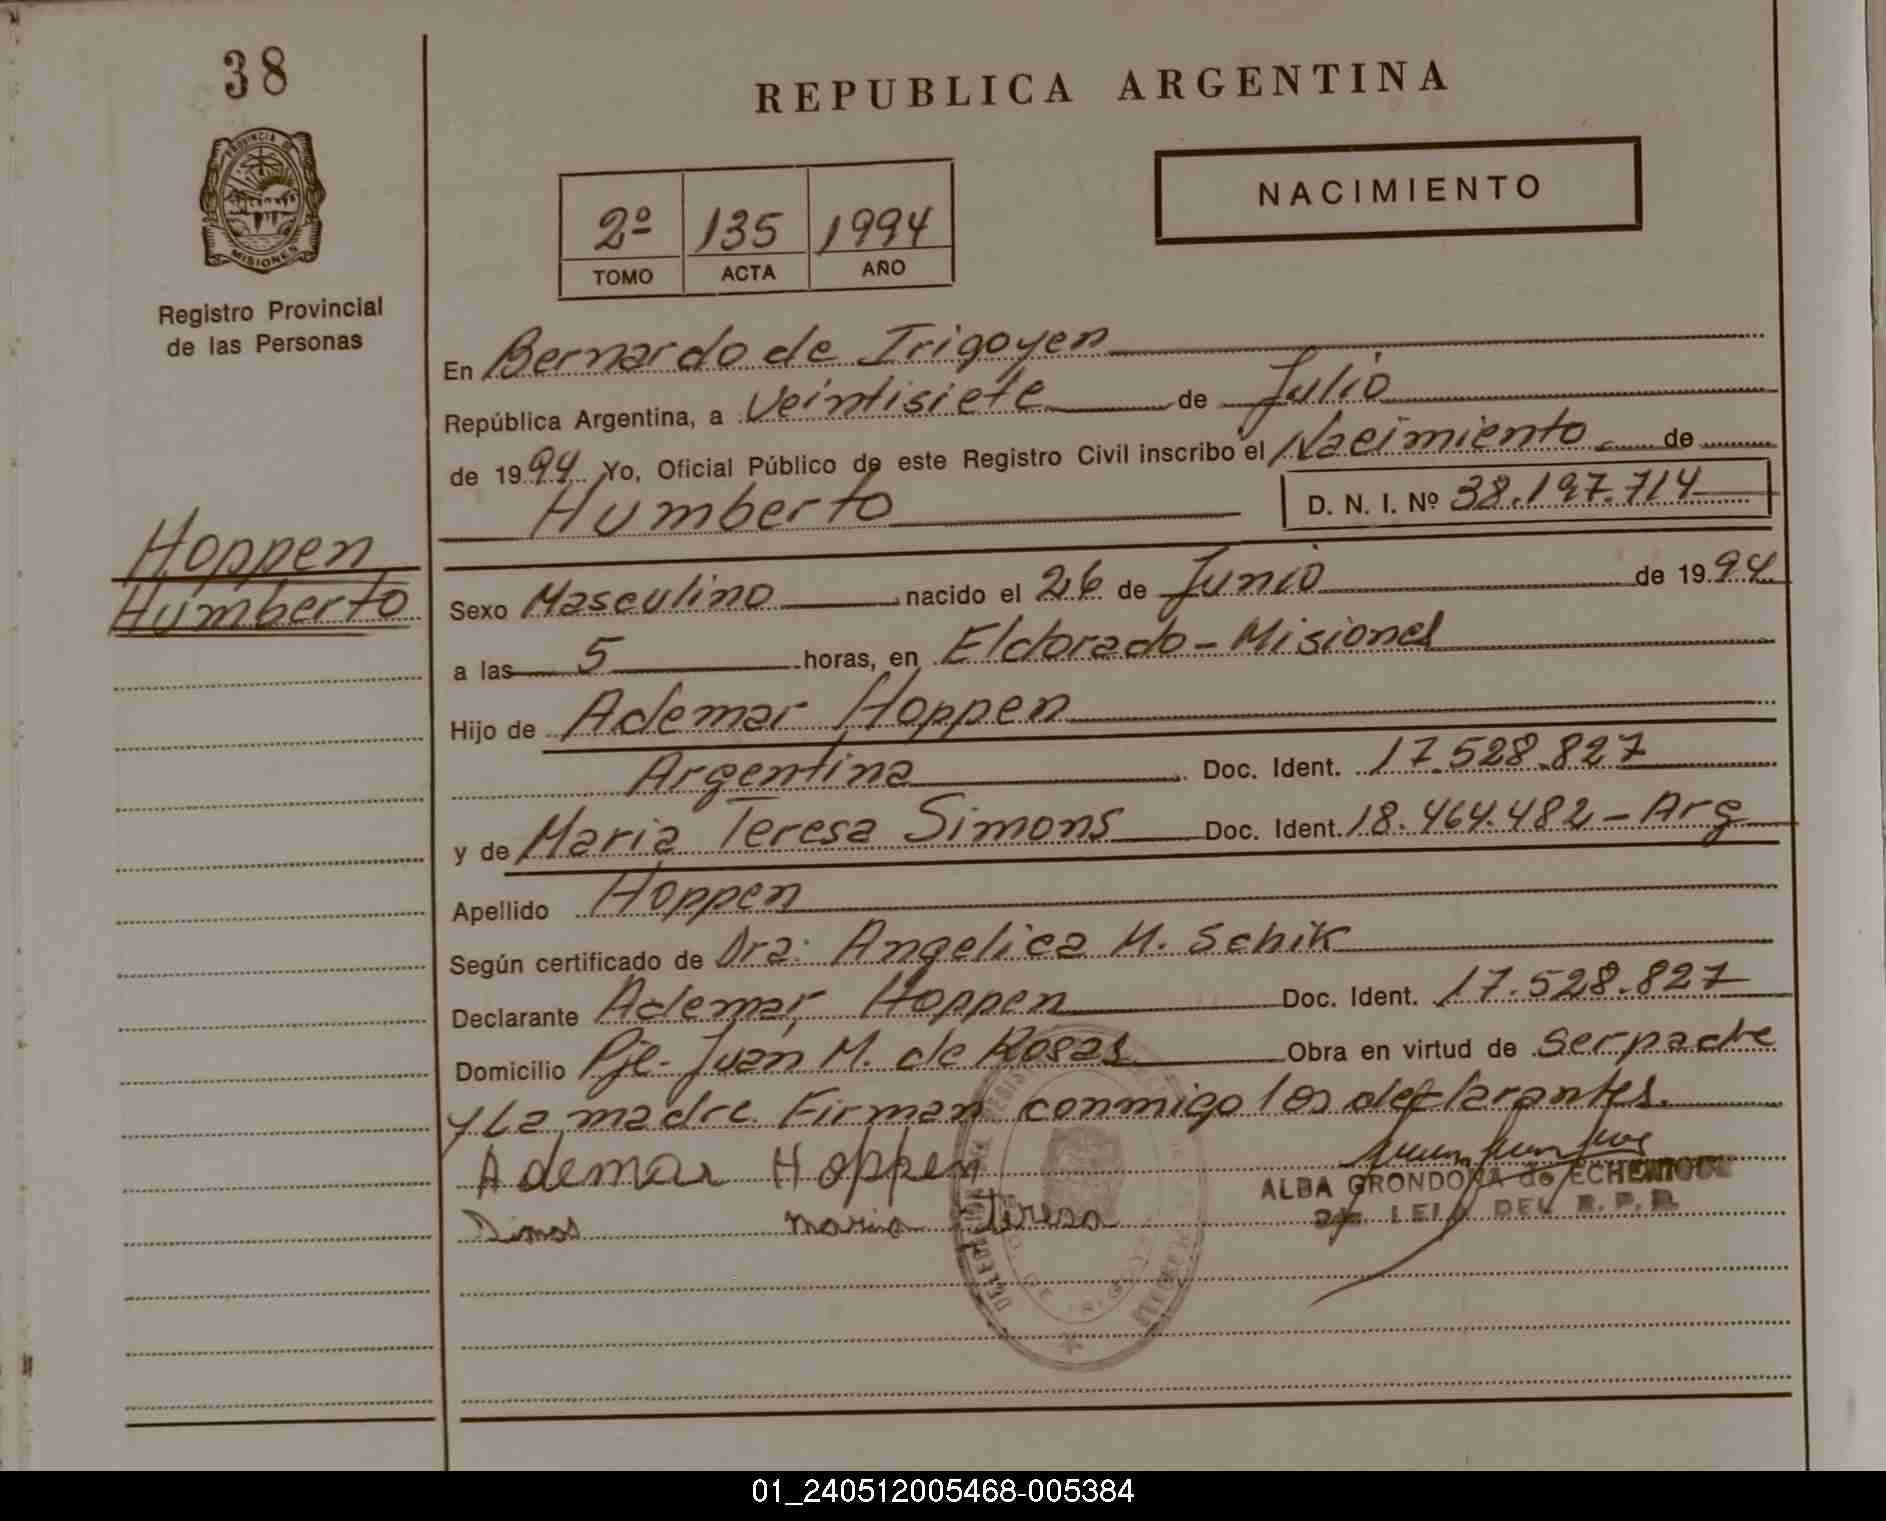 38
REPUBLICA ARGENTINA
PROVINCIA DE
MISIONES
NACIMIENTO
2º 135 1994
TOMO ACTA AÑO
Registro Provincial
de las Personas
En Bernardo de Irigoyen
República Argentina, a Veintisiete de Julio
de 1994 Yo, Oficial Público de este Registro Civil inscribo el Nacimiento de
Humberto D. N. I. Nº 38.197.714
Hoppen
Humberto
Sexo Masculino nacido el 26 de Junio de 1994
a las 5 horas, en Eldorado - Misiones
Hijo de Ademar Hoppen
Argentina Doc. Ident. 17.528.827
y de Maria Teresa Simons Doc. Ident. 18.464.482 - Arg
Apellido Hoppen
Según certificado de Dra: Angelica M. Schik
Declarante Ademar Hoppen Doc. Ident. 17.528.827
Domicilio Pje. Juan M. de Rosas Obra en virtud de ser padre
y La madre. Firman conmigo los declarantes.
Ademar Hoppen
ALBA GRONDONA de ECHENIQUE
maria teresa
DEL R. P. P.
01_240512005468-005384